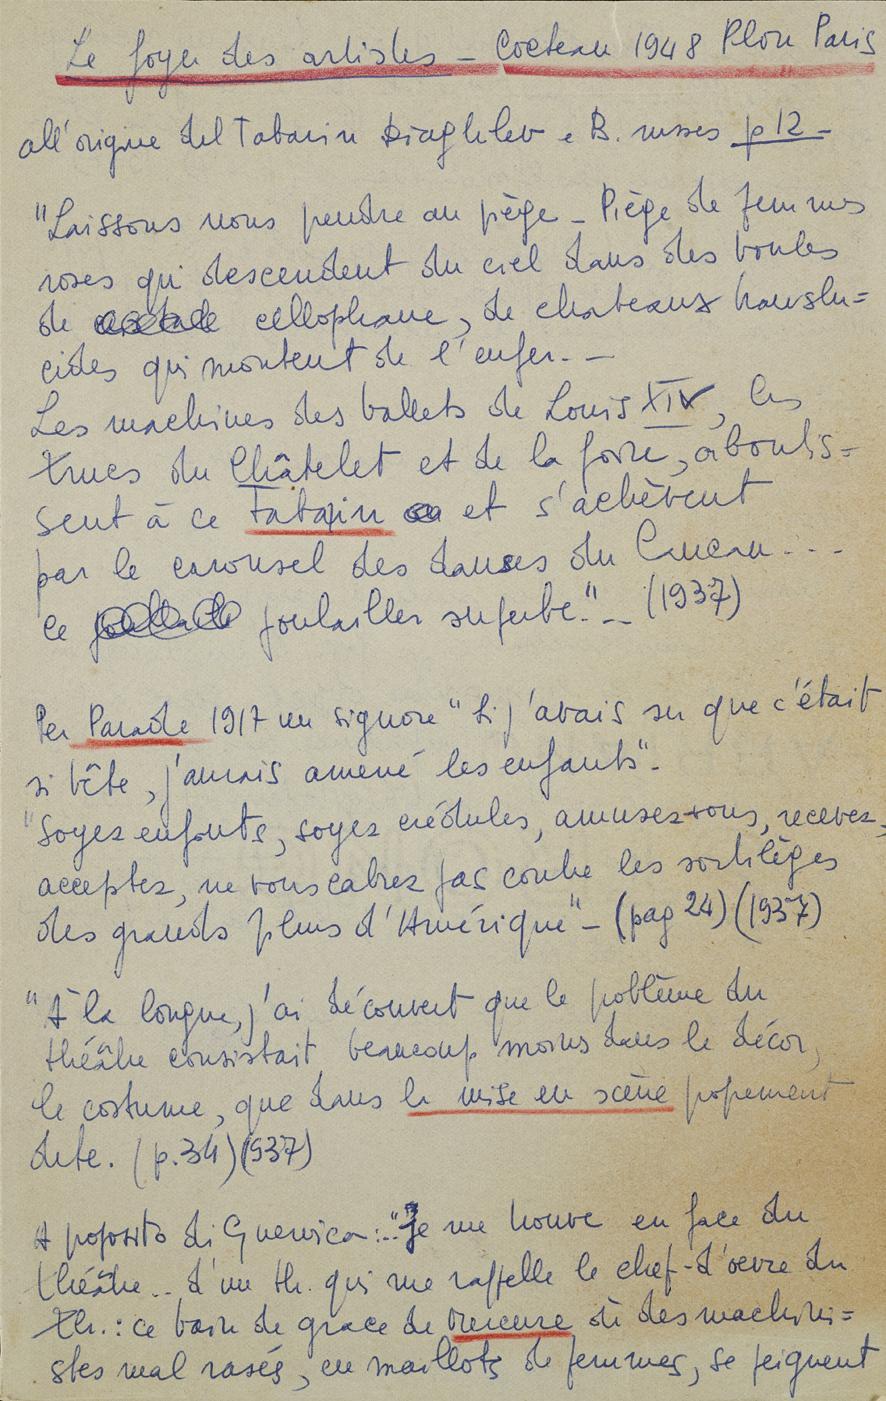 Le foyer des artistes - Cocteau 1948 Plon Paris
all'origine del Tabarin Diaghilev e B. russes p 12 -
"Laissons nous prendre au piège - Piège de femmes
roses qui descendent du ciel dans des boules
de cellophane, de chateaux translu=
cides qui montent de l'enfer. - -
Les machines des ballets de Louis XIV, les
trucs du Châtelet et de la foire, aboutis=
sent à ce Tabarin et s'achèvent
par le carousel des danses du Cancan - - -
ce poulailler superbe." - - (1937)
Per Parade 1917 un signore "si j'avais su que c'était
si bête, j'aurais amené les enfants".
"Soyez enfants, soyez crédules, amusez-vous, recevez,
acceptez, ne vous cabrez pas contre les sortilèges
des grands pleins d'Amérique" - (pag 24) (1937)
"A la longue, j'ai découvert que le problème du
théâtre consistait beaucoup moins dans le décor,
le costume, que dans la mise en scène proprement
dite. (p.34) (937)
A proposito di Guernica:.. "Je me trouve en face du
théâtre.. d'un th. qui me rappelle le chef-d'oevre du
th.: ce bain de grace de Mercure où des machini=
stes mal rasés, en maillots de femmes, se peignent